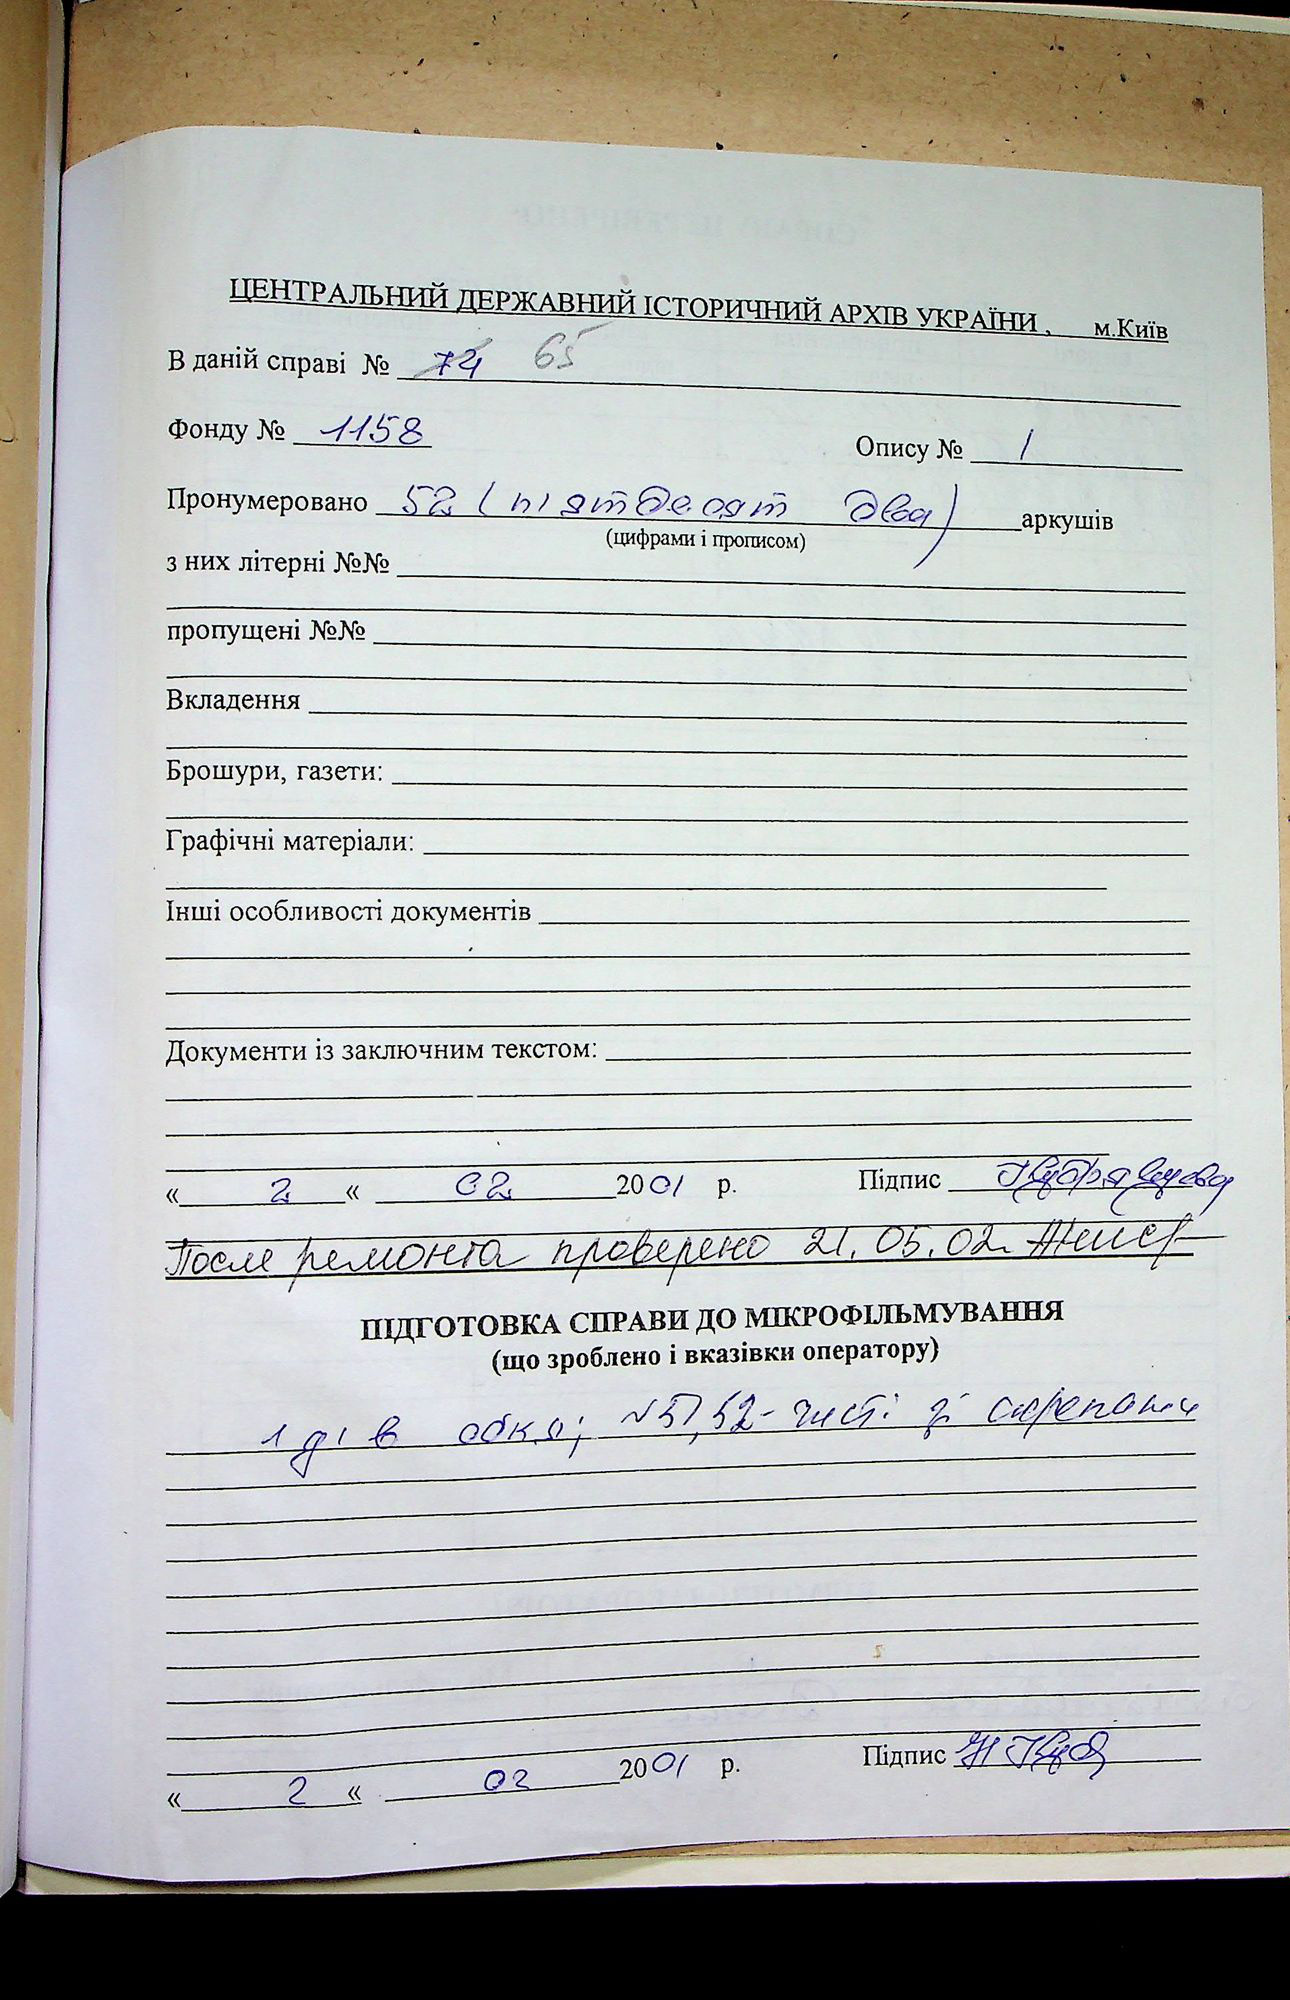 ЦЕНТРАЛЬНИЙ ДЕРЖАВНИЙ ІСТОРИЧНИЙ АРХІВ УКРАЇНИ , м.Київ
В даній справі № 74 65
Фонду № 1158 Опису № 1
Пронумеровано 52 (п'ятдесят два) аркушів
(цифрами і прописом)
з них літерні №№
пропущені №№
Вкладення
Брошури, газети:
Графічні матеріали:
Інші особливості документів
Документи із заключним текстом:
« 2 « 02 2001 р. Підпис
После ремонта проверено 21.05.02.
ПІДГОТОВКА СПРАВИ ДО МІКРОФІЛЬМУВАННЯ
(що зроблено і вказівки оператору)
52 - чисті зі скрепами
« 2 « 02 2001 р. Підпис